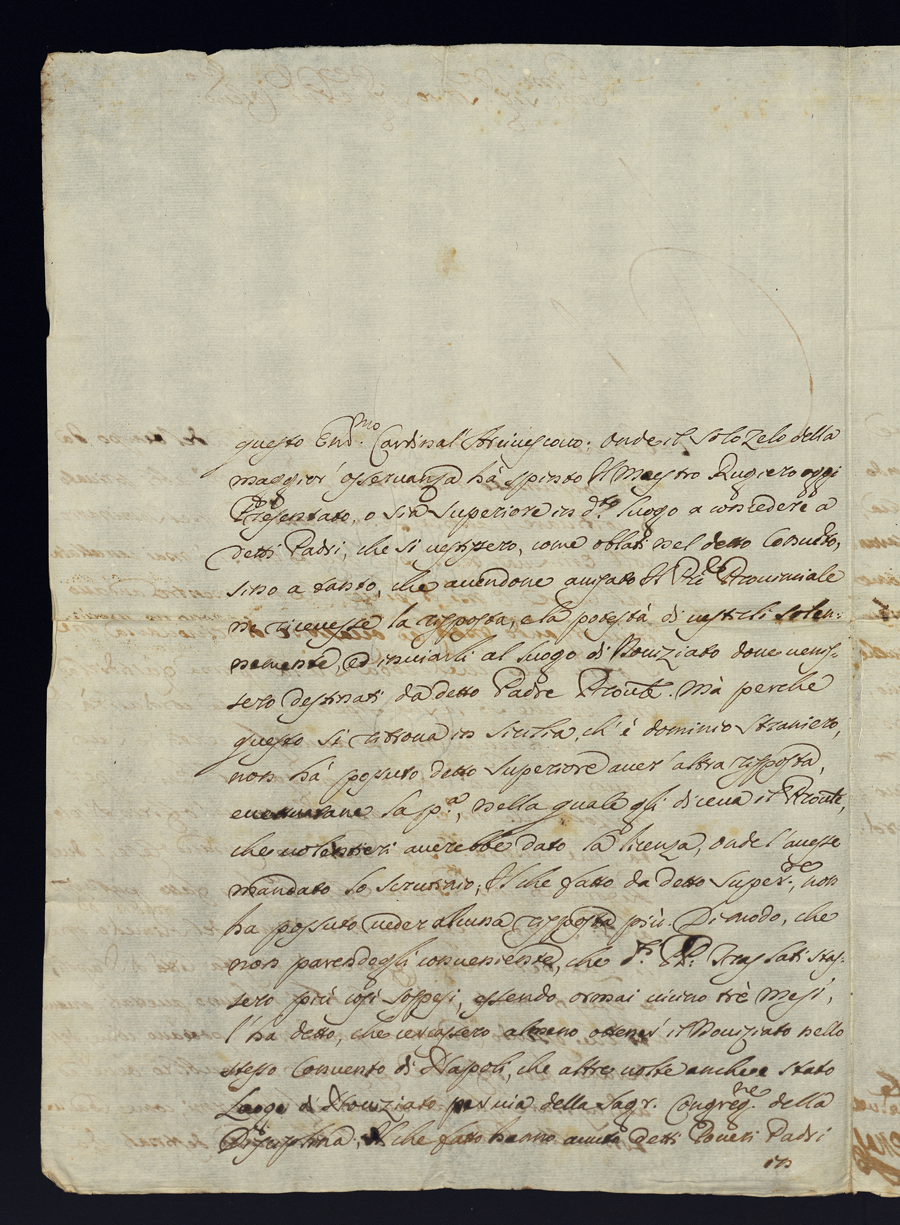 questo Em.mo Cardinal' Arcivescovo; onde il solo zelo della
maggior' osservanza hà spinto il Maestro Rugiero oggi
Presentato, o sia Superiore in d.to luogo a concedere a
detti Padri, che si vestissero, come oblati nel detto Conv.to,
sino a tanto, che avendone avisato il P.re Provinciale
ne ricevesse la risposta, e la potestà di vestirli solen-
nemente, ed inviarli al luogo di Noviziato dove venis-
sero destinati da detto Padre Prov.le. Mà perche
questo si ritrova in Sicilia, ch' è dominio straniero,
non hà possuto detto Superiore aver' altra risposta,
la p.a, nella quale gli diceva il Prov.le,
che volentieri averebbe dato la licenza, onde l' avesse
mandato lo scrutinio; Il che fatto da detto Super.re, non
ha possuto veder alcuna risposta più. Di modo, che
non parendogli conveniente, che d.i PP. Traslati stas-
sero più così sospesi, essendo ormai vicino trè mesi,
l' ha detto, che cercassero almeno ottener' il Noviziato nello
stesso Convento di Napoli, che altre volte anche è stato
Luogo di Noviziato per via della Sagr. Congreg.ne della
Disciplina; Il che fatto hanno avuto detti Poveri Padri
in